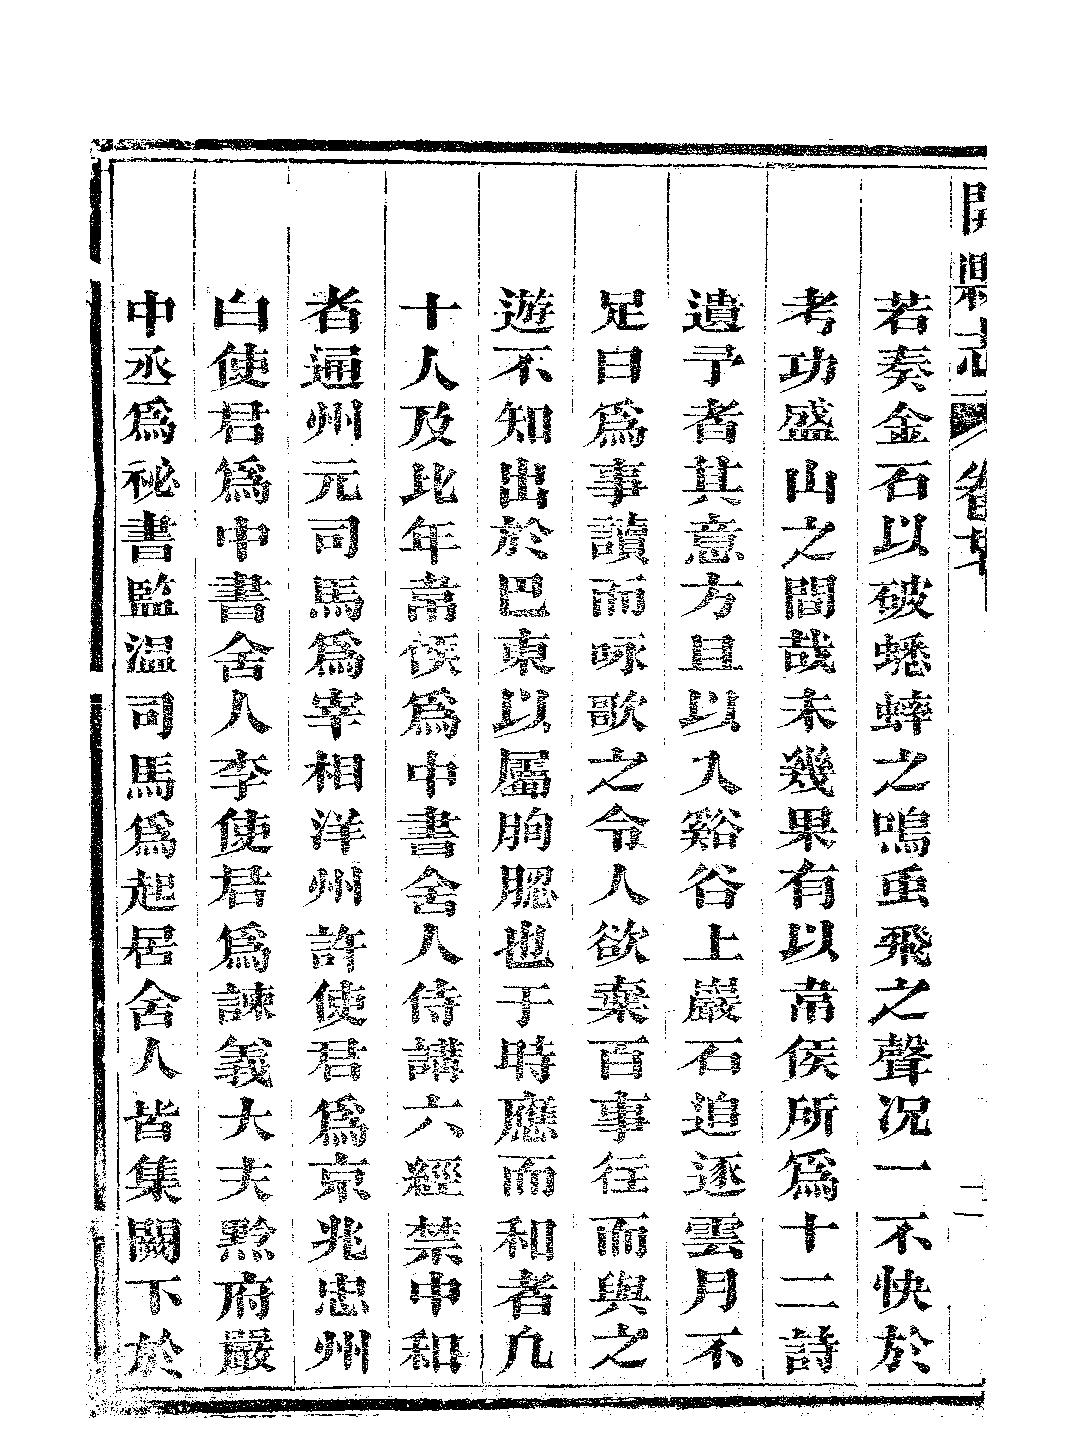 開縣志
若奏金石以破蟋蟀之鳴虫飛之聲况一不快於
考功盛山之間哉未幾果有以韋侯所爲十二詩
遺予者其意方且以入谿谷上巖石追逐雲月不
足日爲事讀而咏歌之令人欲棄百事往而與之
遊不知出於巴東以屬朐䏰也于時應而和者凢
十人及比年韋侯爲中書舍人侍講六經禁中和
者通州元司馬爲宰相洋州許使君爲京兆忠州
白使君爲中書舍人李使君爲諫義大夫黔府嚴
中丞爲祕書監温司馬爲起居舍人皆集闕下於